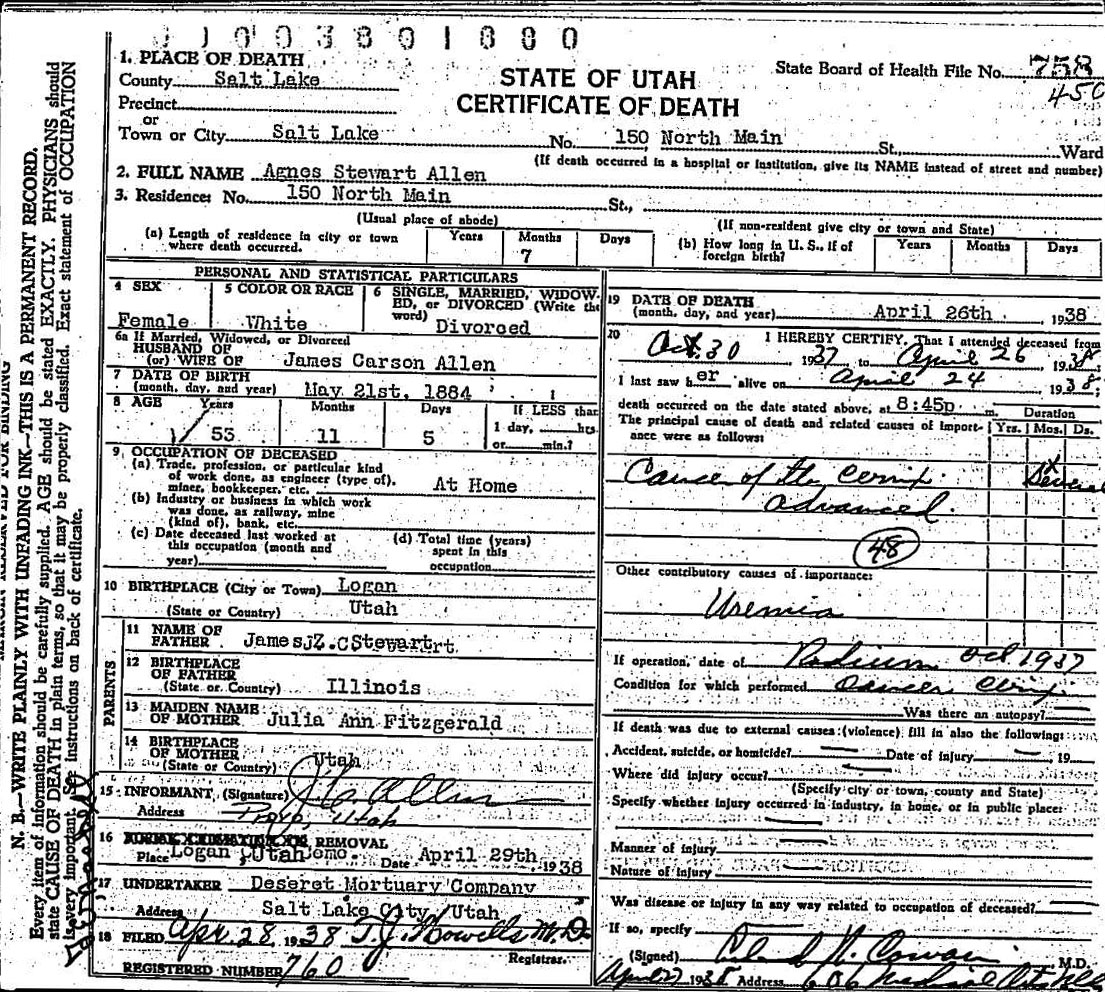 1 1 0 0 3 8 0 1 8 8 0
STATE OF UTAH
CERTIFICATE OF DEATH
State Board of Health File No. 758
450
1. PLACE OF DEATH
County Salt Lake
Precinct
or
Town or City Salt Lake No. 150 North Main St., Ward
(If death occurred in a hospital or institution, give its NAME instead of street and number)
2. FULL NAME Agnes Stewart Allen
3. Residence: No. 150 North Main St.,
(Usual place of abode) (If non-resident give city or town and State)
(a) Length of residence in city or town where death occurred. Years Months 7 Days
(b) How long in U. S., if of foreign birth? Years Months Days
PERSONAL AND STATISTICAL PARTICULARS
4 SEX Female
5 COLOR OR RACE White
6 SINGLE, MARRIED, WIDOWED, or DIVORCED (Write the word) Divorced
6a If Married, Widowed, or Divorced
HUSBAND OF
(or) WIFE OF James Carson Allen
7 DATE OF BIRTH
(month, day, and year) May 21st, 1884
8 AGE Years 53 Months 11 Days 5 If LESS than 1 day, hrs. or min.?
9 OCCUPATION OF DECEASED
(a) Trade, profession, or particular kind
of work done, as engineer (type of),
miner, bookkeeper, etc. At Home
(b) Industry or business in which work
was done, as railway, mine
(kind of), bank, etc.
(c) Date deceased last worked at
this occupation (month and
year)
(d) Total time (years)
spent in this
occupation
10 BIRTHPLACE (City or Town) Logan
(State or Country) Utah
PARENTS
11 NAME OF
FATHER James Z. Stewart
12 BIRTHPLACE
OF FATHER
(State or Country) Illinois
13 MAIDEN NAME
OF MOTHER Julia Ann Fitzgerald
14 BIRTHPLACE
OF MOTHER
(State or Country) Utah
15 INFORMANT (Signature) J. C. Allen
Address Provo, Utah
16 BURIAL CREMATION OR REMOVAL
Place Logan, Utah Date April 29th 1938
17 UNDERTAKER Deseret Mortuary Company
Address Salt Lake City Utah
18 FILED Apr. 28 1938 T. J. Howells M. D.
Registrar.
REGISTERED NUMBER 760
19 DATE OF DEATH
(month, day, and year) April 26th 1938
20 I HEREBY CERTIFY, That I attended deceased from
Oct. 30 1937 to April 26 1938;
I last saw her alive on April 24 1938;
death occurred on the date stated above, at 8:45p m.
The principal cause of death and related causes of importance were as follows:
Duration
Yrs. Mos. Ds.
Cancer of the Cervix Several
advanced.
48
Other contributory causes of importance:
Uremia
If operation, date of Radium Oct. 1937
Condition for which performed Cancer Cervix
Was there an autopsy?
If death was due to external causes (violence) fill in also the following:
Accident, suicide, or homicide? Date of injury 19
Where did injury occur?
(Specify city or town, county and State)
Specify whether injury occurred in industry, in home, or in public place:
Manner of injury
Nature of injury
Was disease or injury in any way related to occupation of deceased?
If so, specify
(Signed) Leland R. Cowan M.D.
April 27 1938 Address 606 Medical Arts Bldg
N. B.—WRITE PLAINLY WITH UNFADING INK—THIS IS A PERMANENT RECORD.
Every item of information should be carefully supplied. AGE should be stated EXACTLY. PHYSICIANS should
state CAUSE OF DEATH in plain terms, so that it may be properly classified. Exact statement of OCCUPATION
is very important. See instructions on back of certificate.